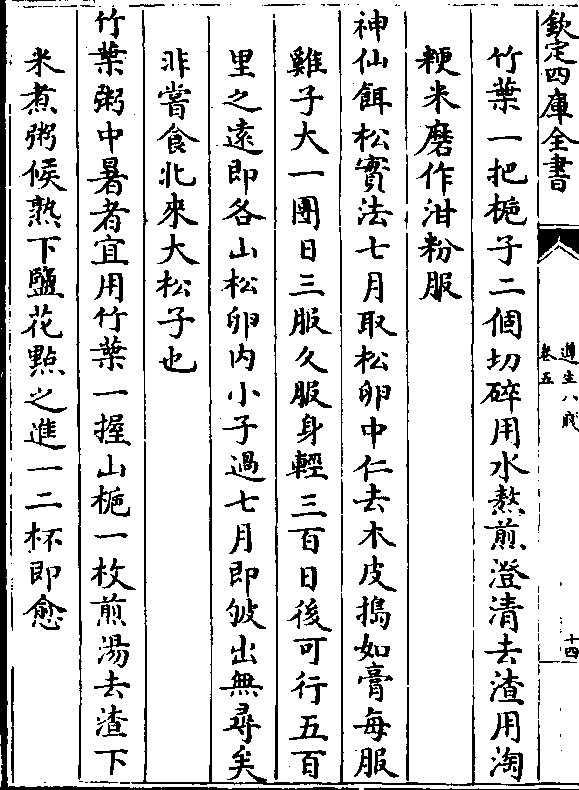 欽定四庫全書
遵生八牋
卷五
十四
竹葉一把梔子二個切碎用水熬煎澄清去渣用淘
粳米磨作泔粉服
神仙餌松實法七月取松卵中仁去木皮搗如膏每服
雞子大一團日三服久服身輕三百日後可行五百
里之遠即各山松卵内小子過七月即皴出無尋矣
非嘗食北來大松子也
竹葉粥中暑者宜用竹葉一握山梔一枚煎湯去渣下
米煮粥候熟下鹽花點之進一二杯即愈